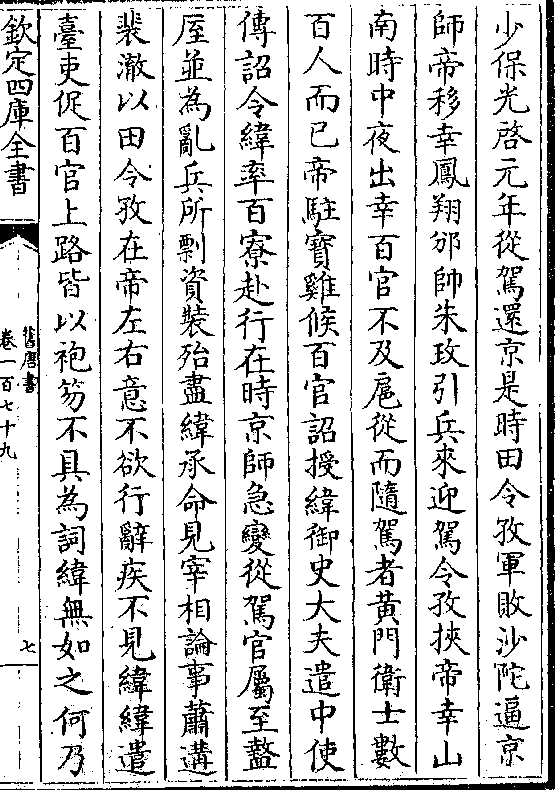 少保光啓元年從駕還京是時田令孜軍敗沙陀逼京
師帝移幸鳳翔邠帥朱玫引兵來迎駕令孜挾帝幸山
南時中夜出幸百官不及扈從而隨駕者黃門衛士數
百人而已帝駐寶雞候百官詔授緯御史大夫遣中使
傳詔令緯率百寮赴行在時京師急變從駕官屬至盩
厔並為亂兵所剽資裝殆盡緯承命見宰相論事蕭遘
裴澈以田令孜在帝左右意不欲行辭疾不見緯緯遣
臺吏促百官上路皆以袍笏不具為詞緯無如之何乃
欽定四庫全書
舊唐書
卷一百七十九
七